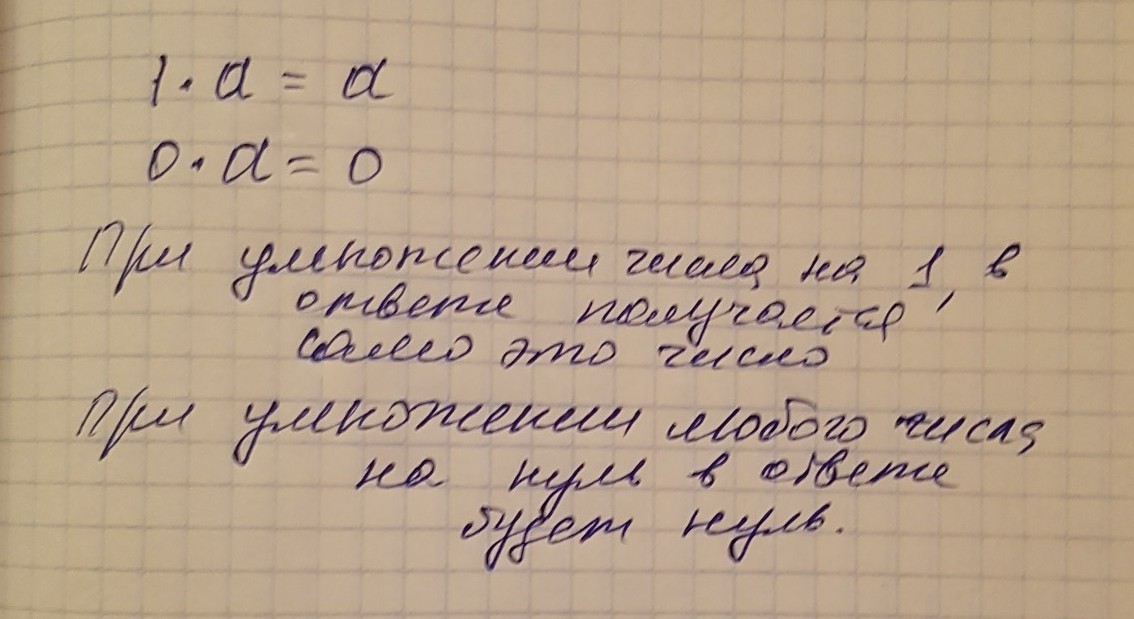 1 · a = a
0 · a = 0
При умножении числа на 1, в
ответе получается
само это число
При умножении любого числа
на нуль в ответе
будет нуль.